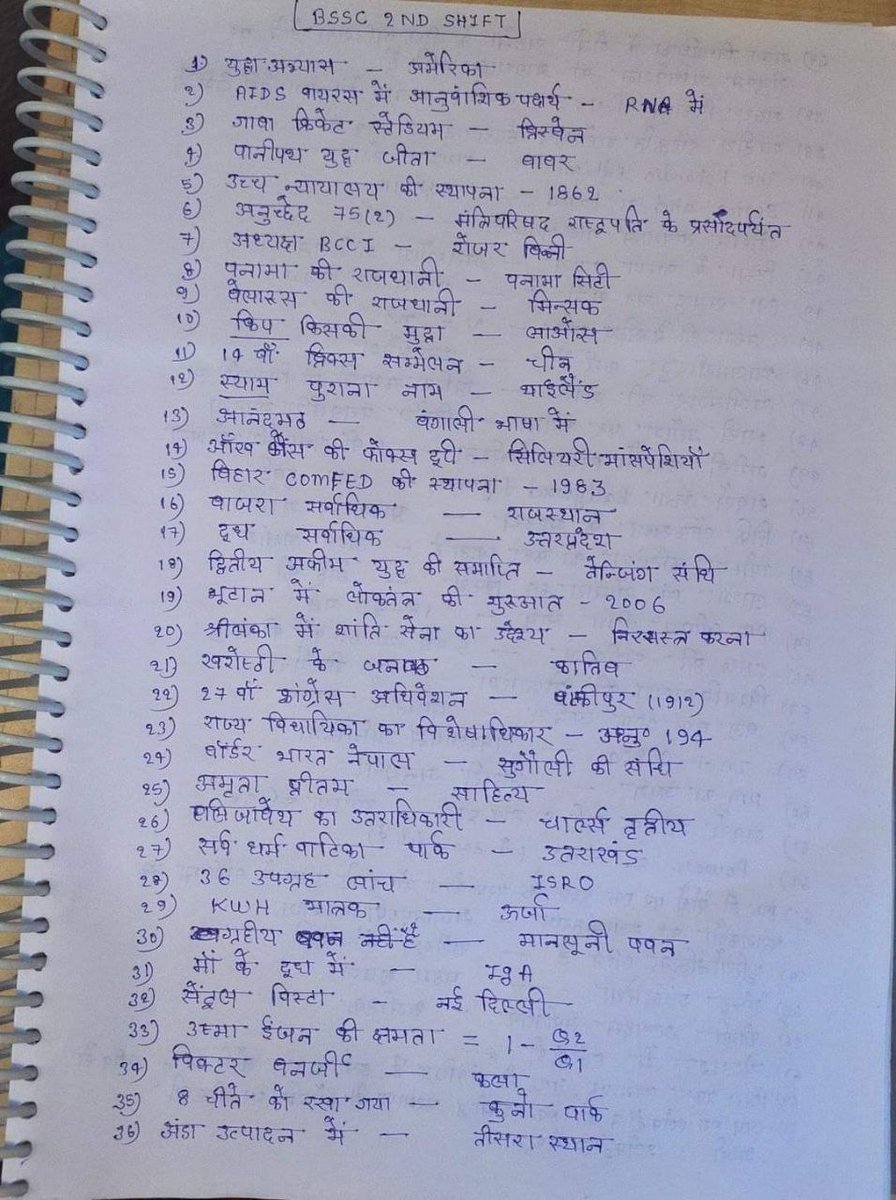 BSSC 2ND SHIFT
1) युद्धाभ्यास – अमेरिका
2) AIDS वायरस में आनुवांशिक पदार्थ – RNA में
3) गाबा क्रिकेट स्टेडियम – ब्रिस्बेन
4) पानीपथ युद्ध जीता – बाबर
5) उच्च न्यायालय की स्थापना – 1862
6) अनुच्छेद 75(2) – मंत्रिपरिषद राष्ट्रपति के प्रसादपर्यंत
7) अध्यक्ष BCCI – रोजर बिन्नी
8) पनामा की राजधानी – पनामा सिटी
9) बेलारूस की राजधानी – मिन्सक
10) किप किसकी मुद्रा – लाओस
11) 14 वाँ ब्रिक्स सम्मेलन – चीन
12) स्याम पुराना नाम – थाईलैंड
13) आनंदमठ – बंगाली भाषा में
14) आँख लेंस की फोकस दूरी – सिलियरी मांसपेशियाँ
15) बिहार COMFED की स्थापना – 1983
16) बाजरा सर्वाधिक – राजस्थान
17) दूध सर्वाधिक – उत्तरप्रदेश
18) द्वितीय अफीम युद्ध की समाप्ति – तेन्जिंग संधि
19) भूटान में लोकतंत्र की शुरूआत – 2006
20) श्रीलंका में शांति सेना का उद्देश्य – निरस्त्र करना
21) खरोस्टी के जनक – कातिब
22) 27 वाँ कांग्रेस अधिवेशन – बांकीपुर (1912)
23) राज्य विधायिका का विशेषाधिकार – अनु० 194
24) बॉर्डर भारत नेपाल – सुगौली की संधि
25) अमृता प्रीतम – साहित्य
26) एलिजाबेथ का उत्तराधिकारी – चार्ल्स तृतीय
27) सर्व धर्म वाटिका पार्क – उतराखंड
28) 36 उपग्रह लांच – ISRO
29) KWH मात्रक – ऊर्जा
30) ग्रहीय पवन नहीं है – मानसूनी पवन
31) माँ के दूध में – IgA
32) सेंट्रल विस्टा – नई दिल्ली
33) उष्मा ईंजन की क्षमता = 1 - Q2/Q1
34) विक्टर बनर्जी – कला
35) 8 चीते को रखा गया – कुनो पार्क
36) अंडा उत्पादन में – तीसरा स्थान